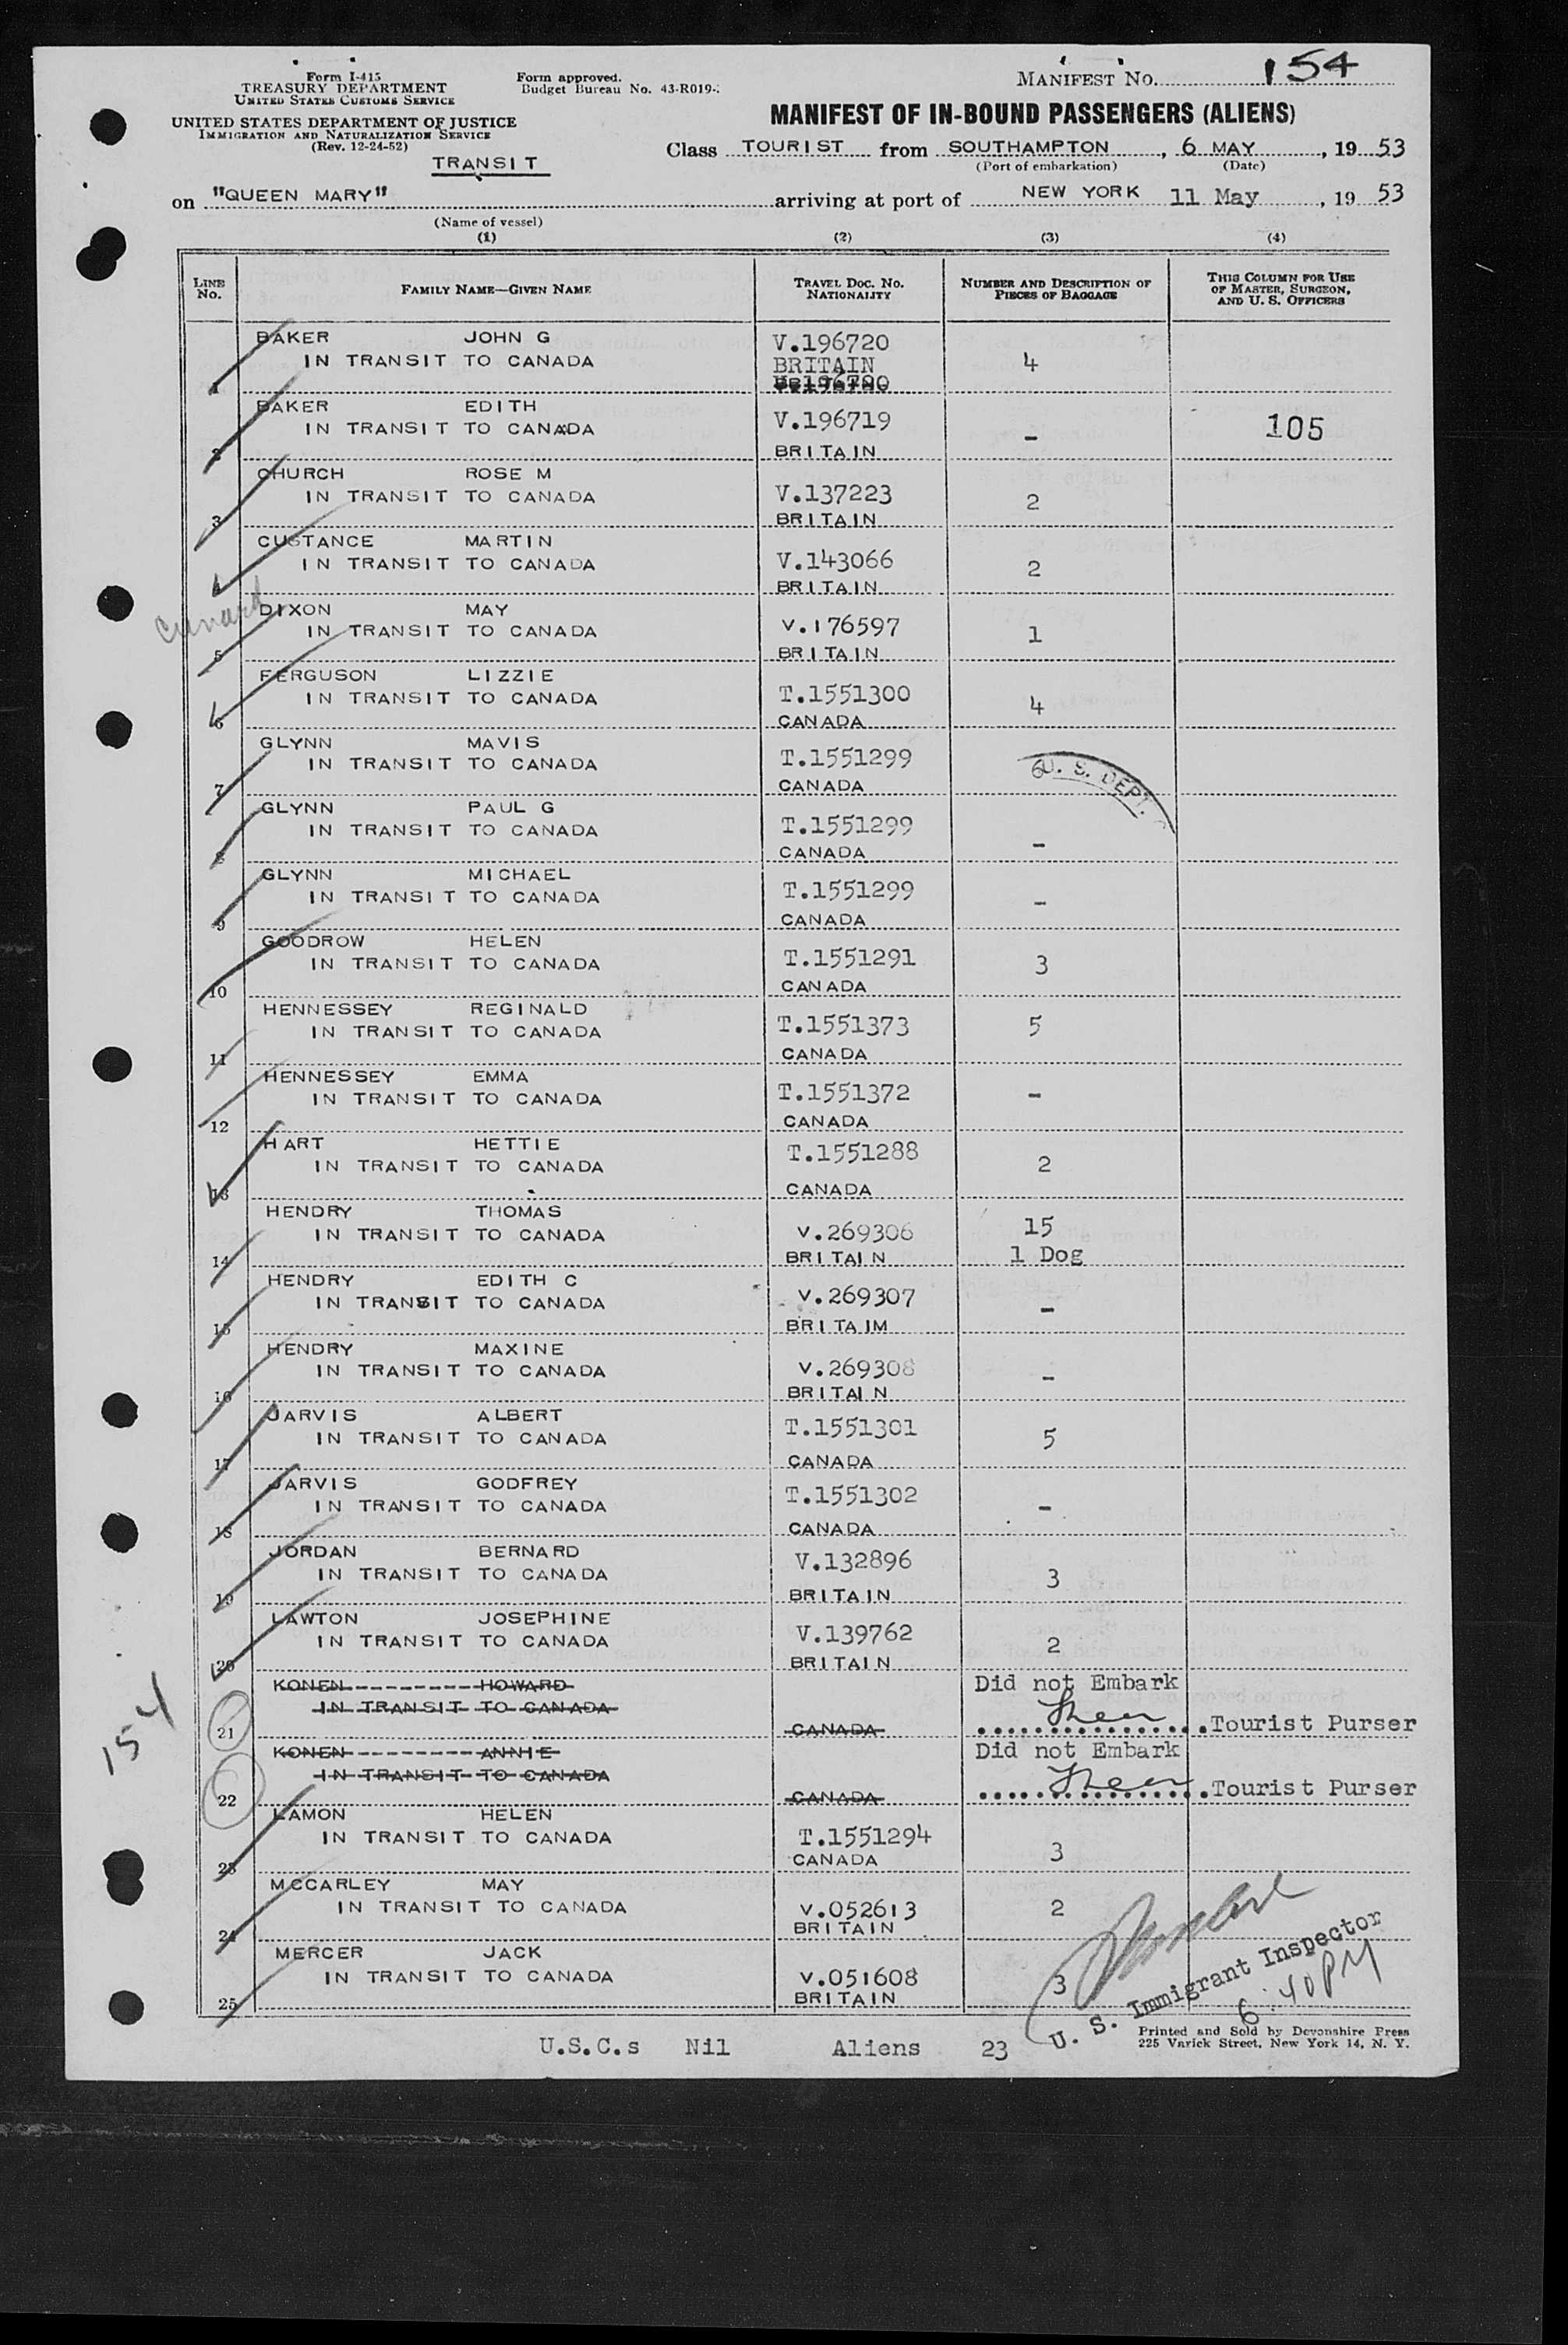 Form I-415
TREASURY DEPARTMENT
UNITED STATES CUSTOMS SERVICE
UNITED STATES DEPARTMENT OF JUSTICE
IMMIGRATION AND NATURALIZATION SERVICE
(Rev. 12-24-52)
TRANSIT
Form approved.
Budget Bureau No. 43-R019-
MANIFEST NO. 154
MANIFEST OF IN-BOUND PASSENGERS (ALIENS)
Class TOURIST from SOUTHAMPTON, 6 MAY, 19 53
(Port of embarkation) (Date)
on "QUEEN MARY" arriving at port of NEW YORK 11 May, 19 53
(Name of vessel)
(1) (2) (3) (4)
LINE NO. FAMILY NAME—GIVEN NAME TRAVEL DOC. NO. NATIONALITY NUMBER AND DESCRIPTION OF PIECES OF BAGGAGE THIS COLUMN FOR USE OF MASTER, SURGEON, AND U. S. OFFICERS
BAKER JOHN G V.196720
IN TRANSIT TO CANADA BRITAIN 4
1
BAKER EDITH V.196719
IN TRANSIT TO CANADA - 105
2 BRITAIN
CHURCH ROSE M V.137223
IN TRANSIT TO CANADA 2
3 BRITAIN
CUSTANCE MARTIN V.143066
IN TRANSIT TO CANADA 2
4 BRITAIN
Cunard
DIXON MAY V.176597
IN TRANSIT TO CANADA 1
5 BRITAIN
FERGUSON LIZZIE T.1551300
IN TRANSIT TO CANADA 4
6 CANADA
GLYNN MAVIS T.1551299
IN TRANSIT TO CANADA 6 U. S. DEPT.
7 CANADA
GLYNN PAUL G T.1551299
IN TRANSIT TO CANADA -
8 CANADA
GLYNN MICHAEL T.1551299
IN TRANSIT TO CANADA -
9 CANADA
GOODROW HELEN T.1551291
IN TRANSIT TO CANADA 3
10 CANADA
HENNESSEY REGINALD T.1551373
IN TRANSIT TO CANADA 5
11 CANADA
HENNESSEY EMMA T.1551372
IN TRANSIT TO CANADA -
12 CANADA
HART HETTIE T.1551288
IN TRANSIT TO CANADA 2
13 CANADA
HENDRY THOMAS V.269306 15
IN TRANSIT TO CANADA
14 BRITAIN 1 Dog
HENDRY EDITH C V.269307
IN TRANSIT TO CANADA -
15 BRITAIM
HENDRY MAXINE V.269308
IN TRANSIT TO CANADA -
16 BRITAIN
JARVIS ALBERT T.1551301
IN TRANSIT TO CANADA 5
17 CANADA
JARVIS GODFREY T.1551302
IN TRANSIT TO CANADA -
18 CANADA
JORDAN BERNARD V.132896
IN TRANSIT TO CANADA 3
19 BRITAIN
LAWTON JOSEPHINE V.139762
IN TRANSIT TO CANADA 2
20 BRITAIN
KONEN HOWARD Did not Embark
IN TRANSIT TO CANADA
21 CANADA Tourist Purser
KONEN ANNIE Did not Embark
IN TRANSIT TO CANADA
22 CANADA Tourist Purser
154
LAMON HELEN T.1551294
IN TRANSIT TO CANADA 3
23 CANADA
MCCARLEY MAY V.052613
IN TRANSIT TO CANADA 2
24 BRITAIN
MERCER JACK V.051608
IN TRANSIT TO CANADA 3
25 BRITAIN
U. S. Immigrant Inspector
6:40 PM
U.S.C.s Nil Aliens 23
Printed and Sold by Devonshire Press
225 Varick Street, New York 14, N. Y.